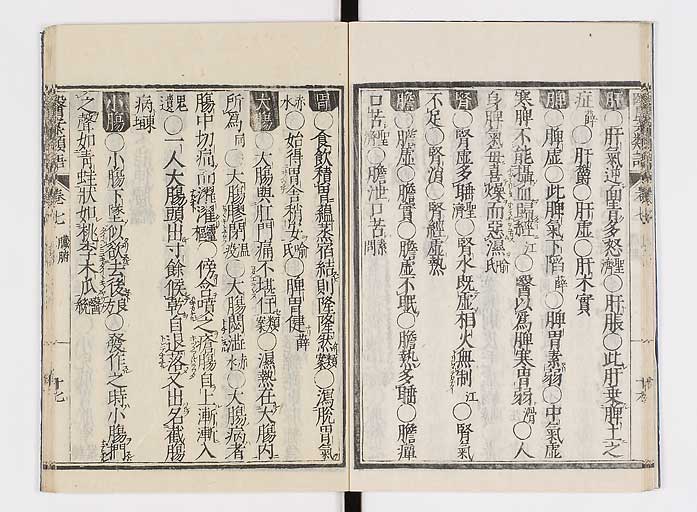 肝 ○肝氣逆面青多怒聖濟○肝脹○此肝乗脾土之
症薛○肝鬱○肝虛○肝木實
脾 ○脾虛○此脾氣下陷薛○脾胃素弱○中氣虛
寒脾不能攝血歸經江○醫以為脾寒胃弱滑○人
身脾氣毎喜燥而惡濕喻氏
腎 ○腎虛多唾聖濟○腎水既虛相火無制江○腎氣
不足○腎消○腎經虛熱
膽 ○膽虛○膽實○膽虛不眠○膽熱多睡○膽癉
口苦聖濟○膽泄口苦
胃 ○食飲積胃蘊蒸宿結則隆隆然類案○瀉脫胃氣
赤水○始得胃舍稍安喻氏○脾胃健薛
大腸 ○大腸與肛門痛不堪任類案○濕熱在大腸内
所為同○大腸膠閉温疫○大腸閟澁赤水○大腸病者
腸中切痛而
○一人大腸頭出寸餘候乾自退落又出名截腸
病
小腸 ○小腸下墜似欲去後良方○發作之時小腸
之聲如青蛙狀如桃李木瓜醫統
醫案類語 卷七 臟腑 十七